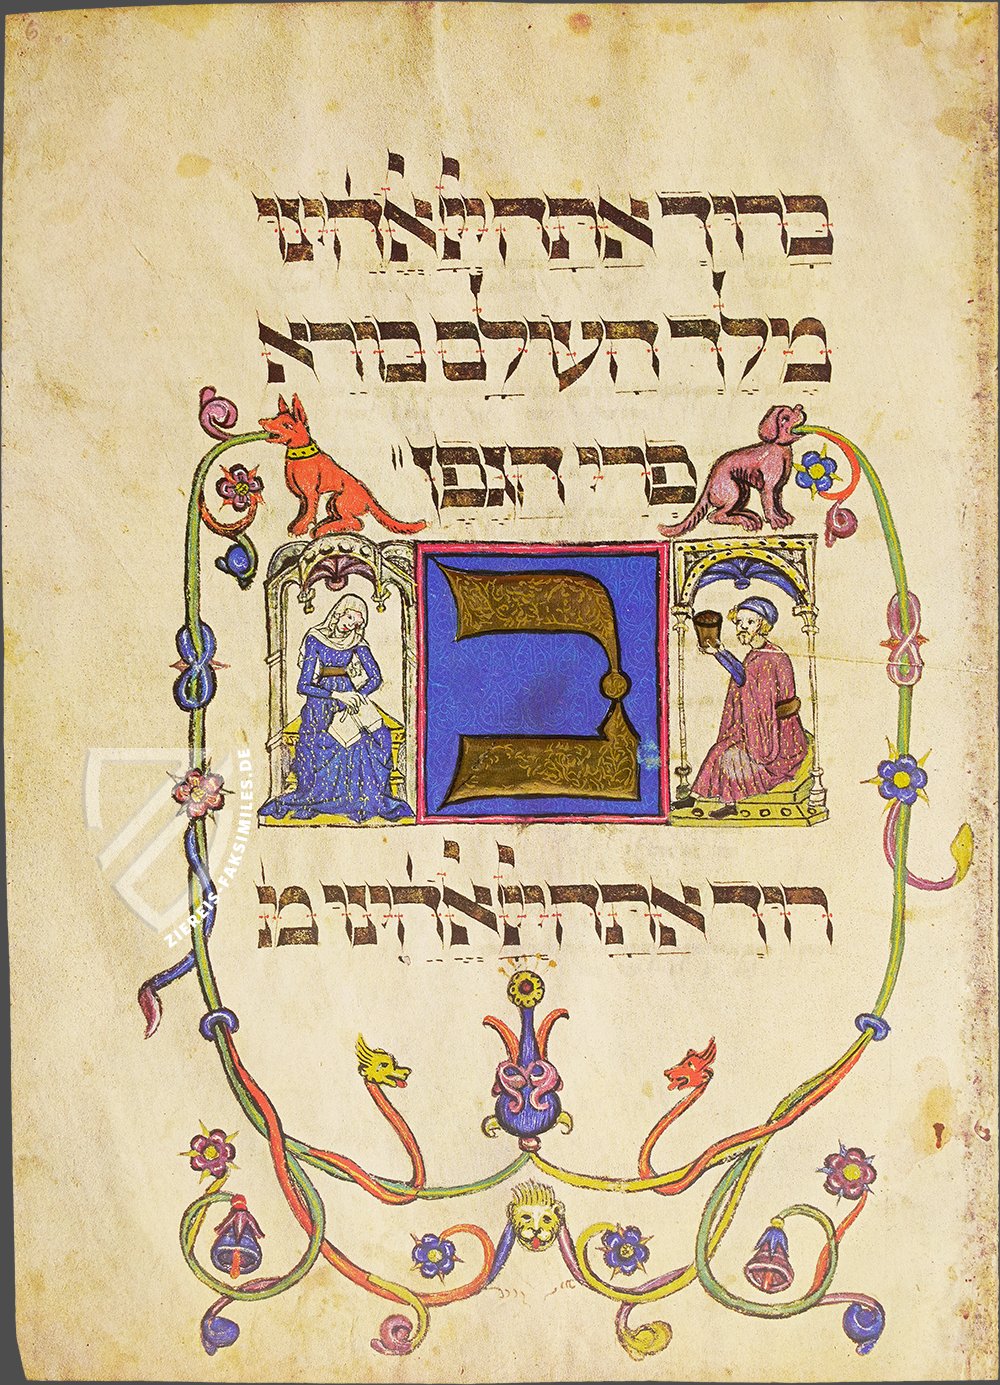 6
ברוך אתה יי אלהינו
מלך העולם בורא
פרי הגפן"
ב
רוך אתה יי אלהינו מ
ZIEREIS FAKSIMILES.DE